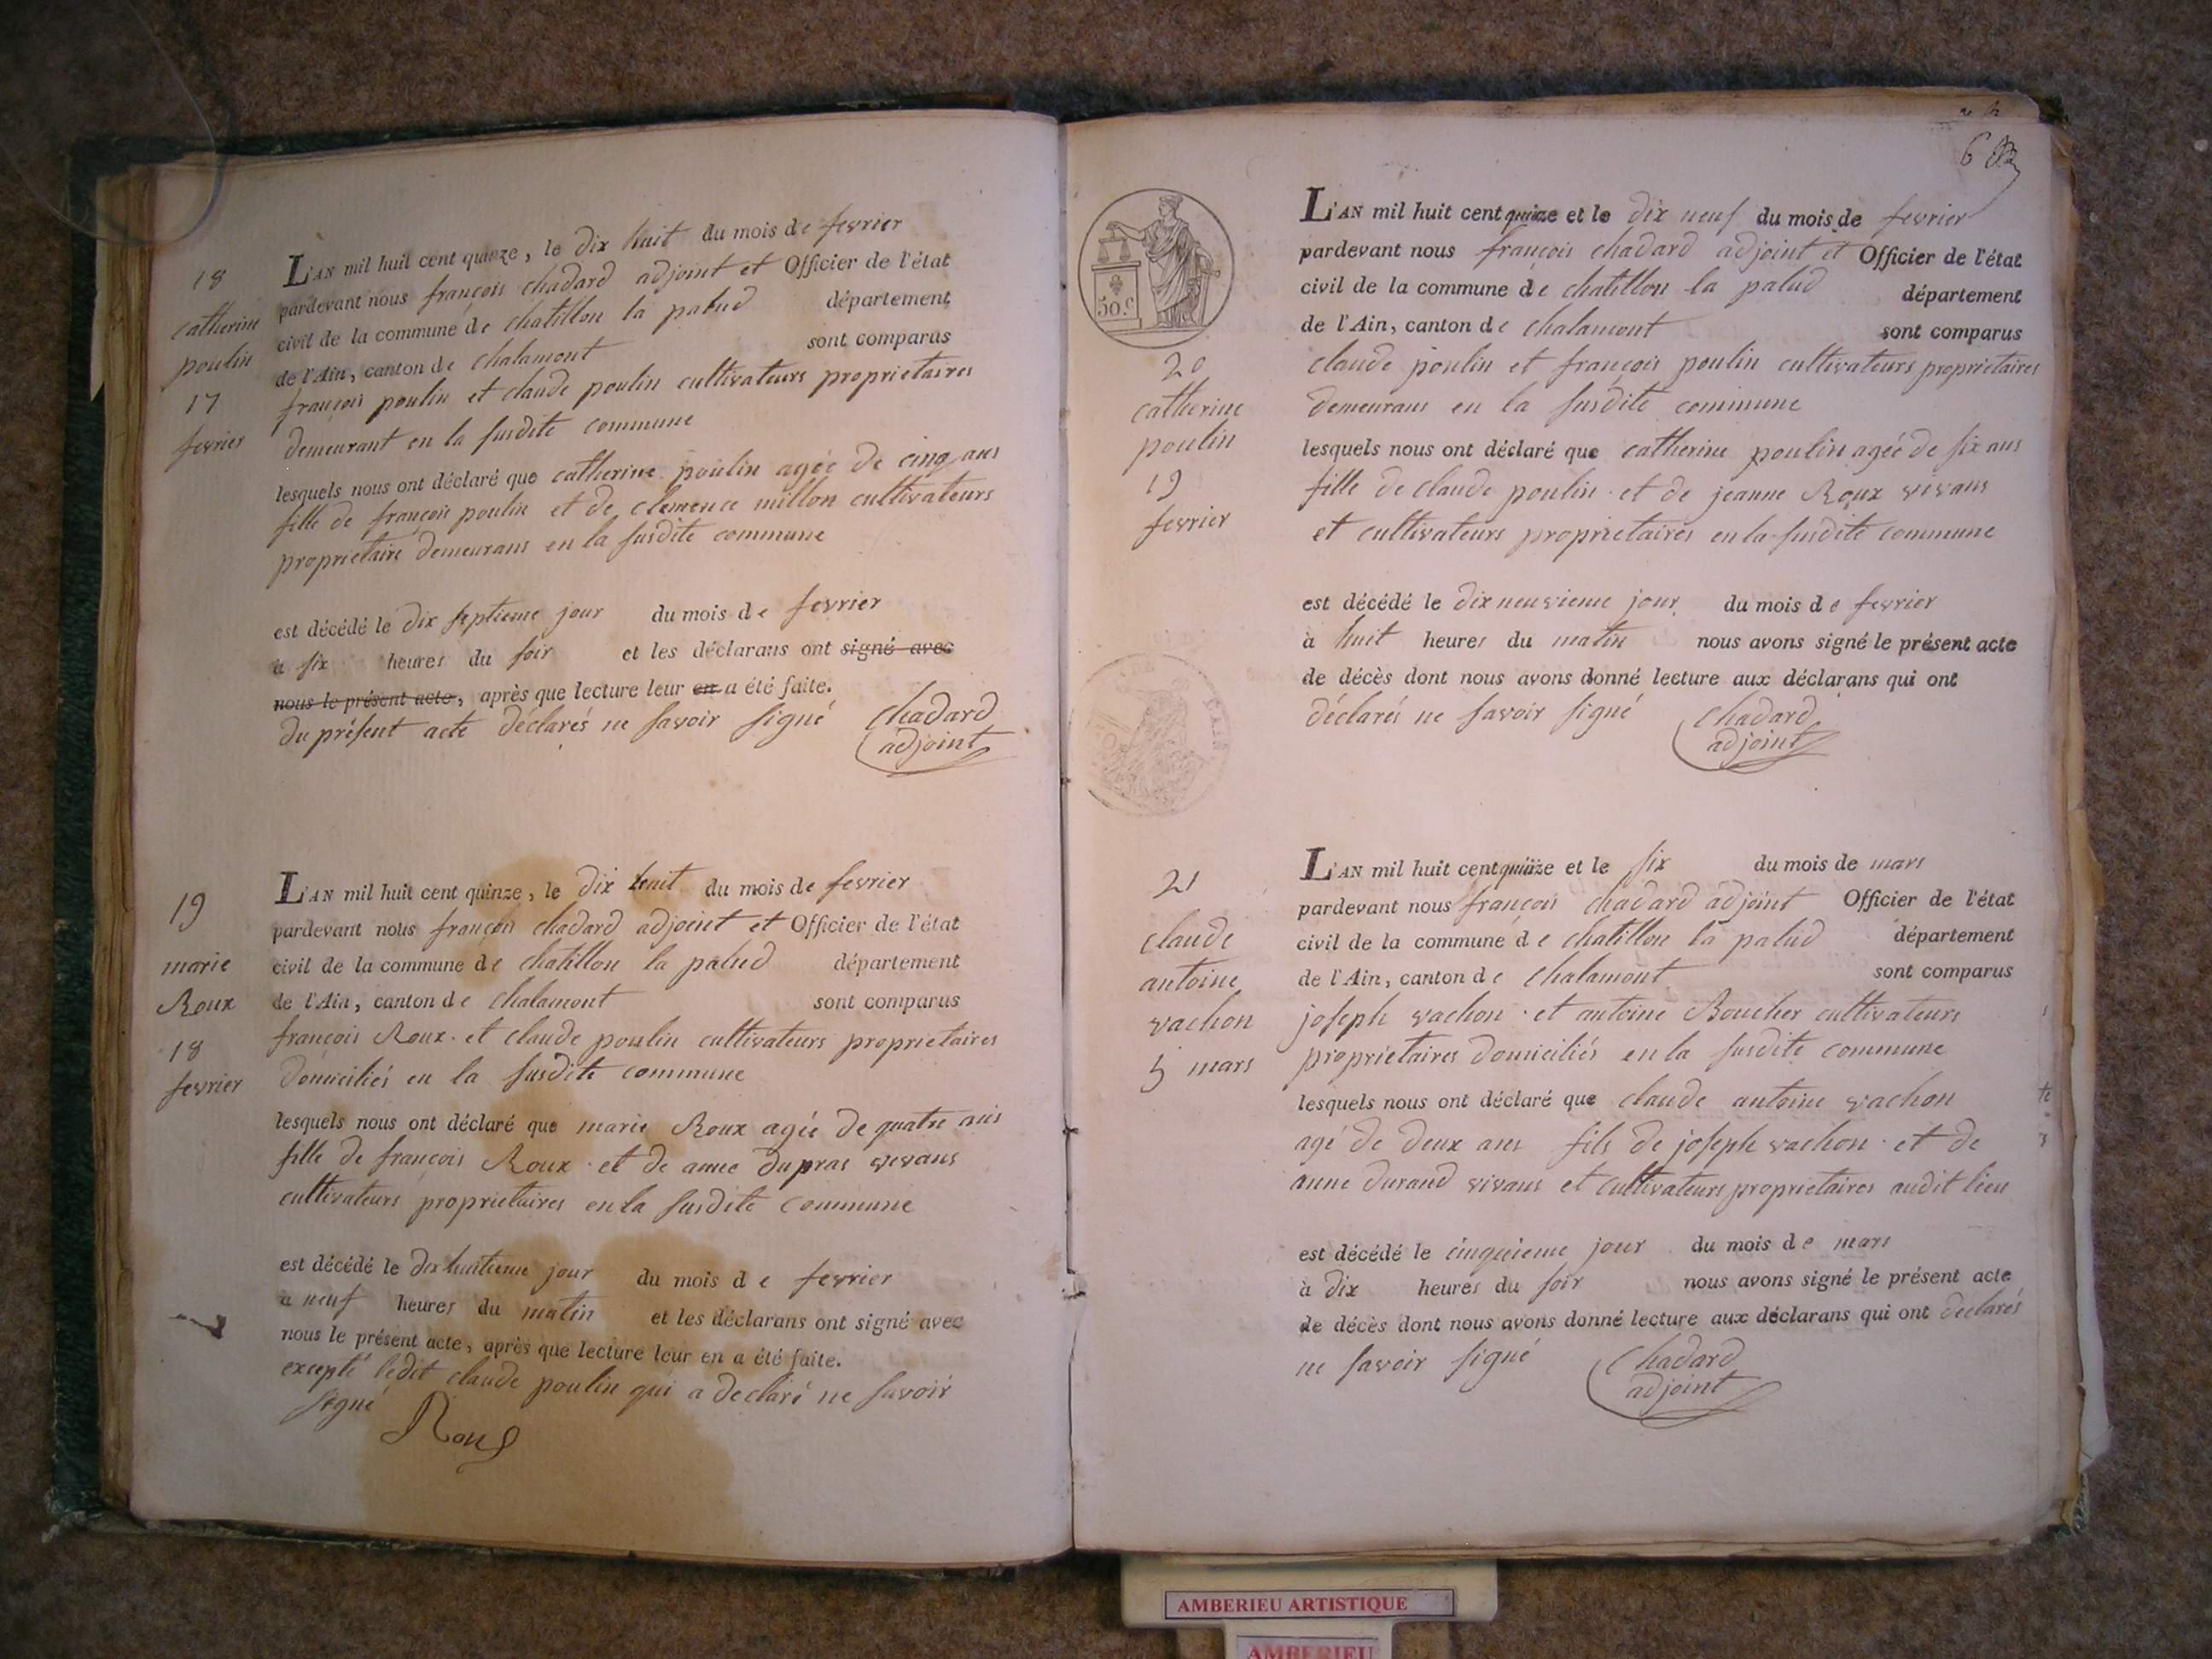 18
catherine
poulin
17
fevrier
L'AN mil huit cent quinze, le dix huit du mois de fevrier
pardevant nous françois chadard adjoint et Officier de l'état
civil de la commune de chatillon la palud département
de l'Ain, canton de chalamont sont comparus
françois poulin et claude poulin cultivateurs proprietaires
demeurant en la susdite commune
lesquels nous ont déclaré que catherine poulin agée de cinq ans
fille de françois poulin et de clemence millon cultivateurs
proprietaire demeurans en la susdite commune
est décédé le dix septieme jour du mois de fevrier
à six heures du soir et les déclarans ont signé avec
nous le présent acte, après que lecture leur en a été faite.
du présent acte déclarés ne savoir signé
chadard
adjoint
19
marie
Roux
18
fevrier
L'AN mil huit cent quinze, le dix huit du mois de fevrier
pardevant nous françois chadard adjoint et Officier de l'état
civil de la commune de chatillon la palud département
de l'Ain, canton de chalamont sont comparus
françois Roux et claude poulin cultivateurs proprietaires
domiciliés en la susdite commune
lesquels nous ont déclaré que marie Roux agée de quatre ans
fille de françois Roux et de anne dupras vivans
cultivateurs proprietaires en la susdite commune
est décédé le dix huitieme jour du mois de fevrier
à neuf heures du matin et les déclarans ont signé avec
nous le présent acte, après que lecture leur en a été faite.
excepté ledit claude poulin qui a declaré ne savoir
signé
Roux
6
50 c
20
catherine
poulin
19
fevrier
L'AN mil huit cent quinze et le dix neuf du mois de fevrier
pardevant nous françois chadard adjoint et Officier de l'état
civil de la commune de chatillon la palud département
de l'Ain, canton de chalamont sont comparus
claude poulin et françois poulin cultivateurs proprietaires
demeurans en la susdite commune
lesquels nous ont déclaré que catherine poulin agée de six ans
fille de claude poulin et de jeanne Roux vivans
et cultivateurs proprietaires en la susdite commune
est décédé le dix neuvieme jour du mois de fevrier
à huit heures du matin nous avons signé le présent acte
de décès dont nous avons donné lecture aux déclarans qui ont
déclarés ne savoir signé
chadard
adjoint
21
claude
antoine
vachon
5 mars
L'AN mil huit cent quinze et le six du mois de mars
pardevant nous françois chadard adjoint Officier de l'état
civil de la commune de chatillon la palud département
de l'Ain, canton de chalamont sont comparus
joseph vachon et antoine Boucher cultivateurs
proprietaires domiciliés en la susdite commune
lesquels nous ont déclaré que claude antoine vachon
agé de deux ans fils de joseph vachon et de
anne durand vivans et cultivateurs proprietaires audit lieu
est décédé le cinquieme jour du mois de mars
à dix heures du soir nous avons signé le présent acte
de décès dont nous avons donné lecture aux déclarans qui ont declarés
ne savoir signé
chadard
adjoint
AMBERIEU ARTISTIQUE
AMBERIEU